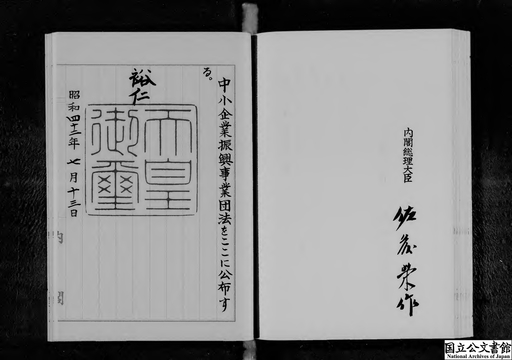 中小企業振興事業団法をここに公布す
る。
裕仁
天皇
御璽
昭和四十二年七月十三日
内閣総理大臣
佐藤榮作
国立公文書館
National Archives of Japan